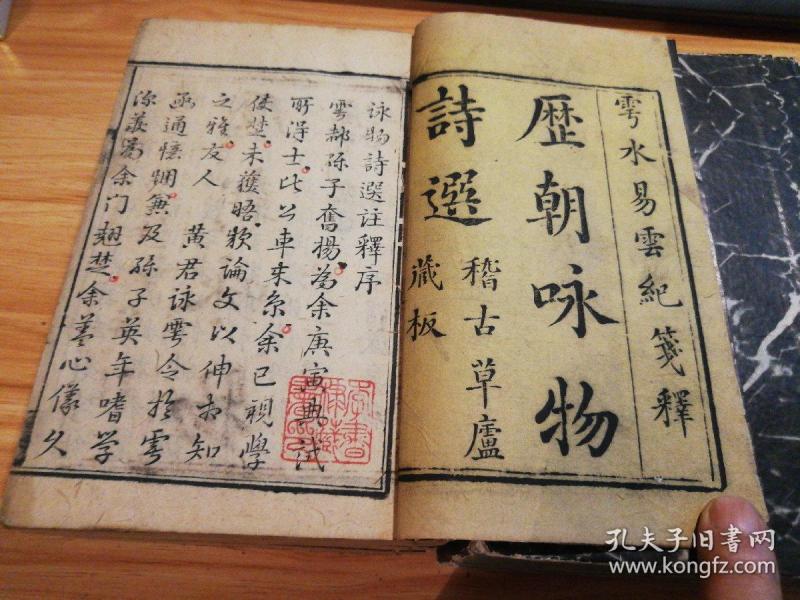 雩水易雲紀箋釋
歷朝咏物
詩選
稽古草廬
藏板
詠物詩選註釋序
雩都孫子奮揚為余庚寅典試
所得士比公車来京余已視學
使楚未獲晤欵論文以伸相知
之雅友人 黄君詠雩令於雩
函通悃愊兼及孫子英年嗜学
余门翘楚余葢心儀久
孔夫子旧书网
www.kongfz.com